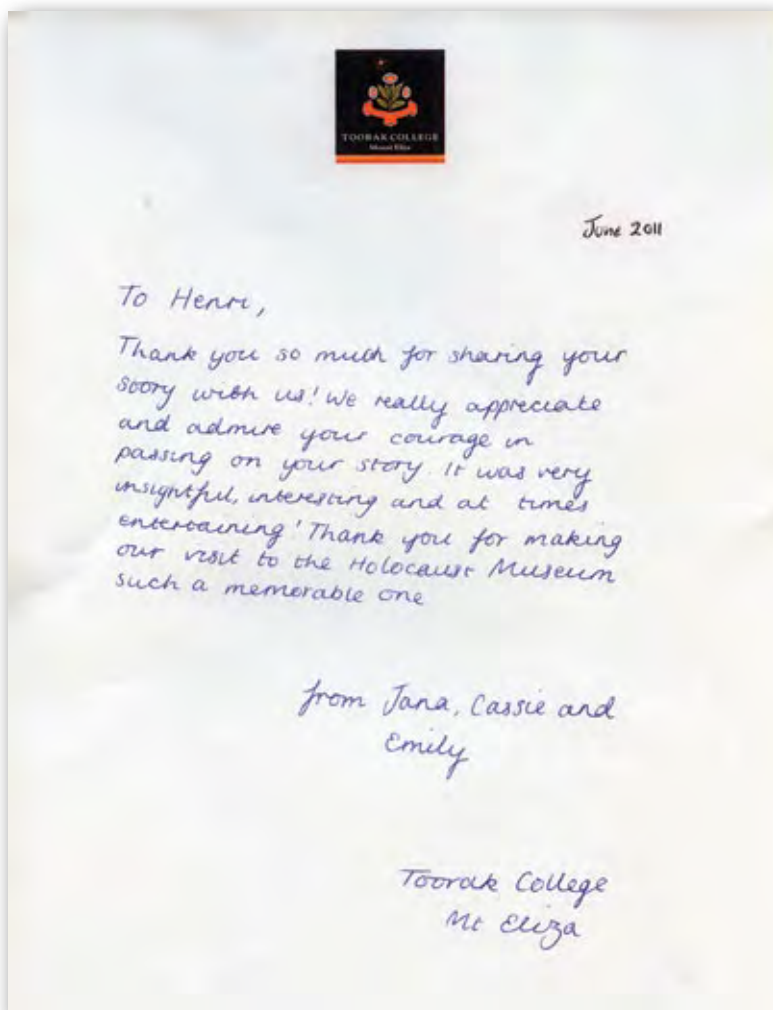 TOORAK COLLEGE
Mount Eliza
June 2011
To Henri,
Thank you so much for sharing your
story with us! We really appreciate
and admire your courage in
passing on your story. It was very
insightful, interesting and at times
entertaining! Thank you for making
our visit to the Holocaust Museum
such a memorable one
from Jana, Cassie and
Emily
Toorak College
Mt Eliza